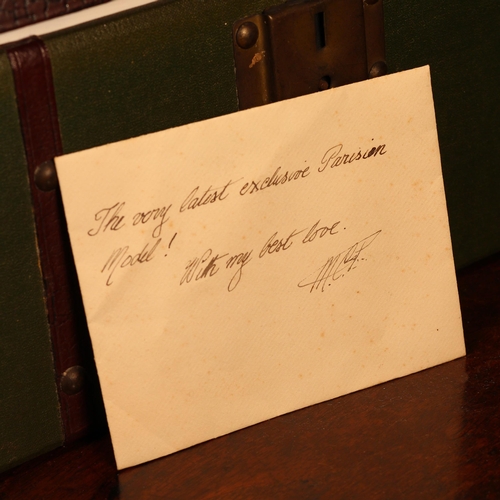 The very latest exclusive Parisian
Model!
With my best love.